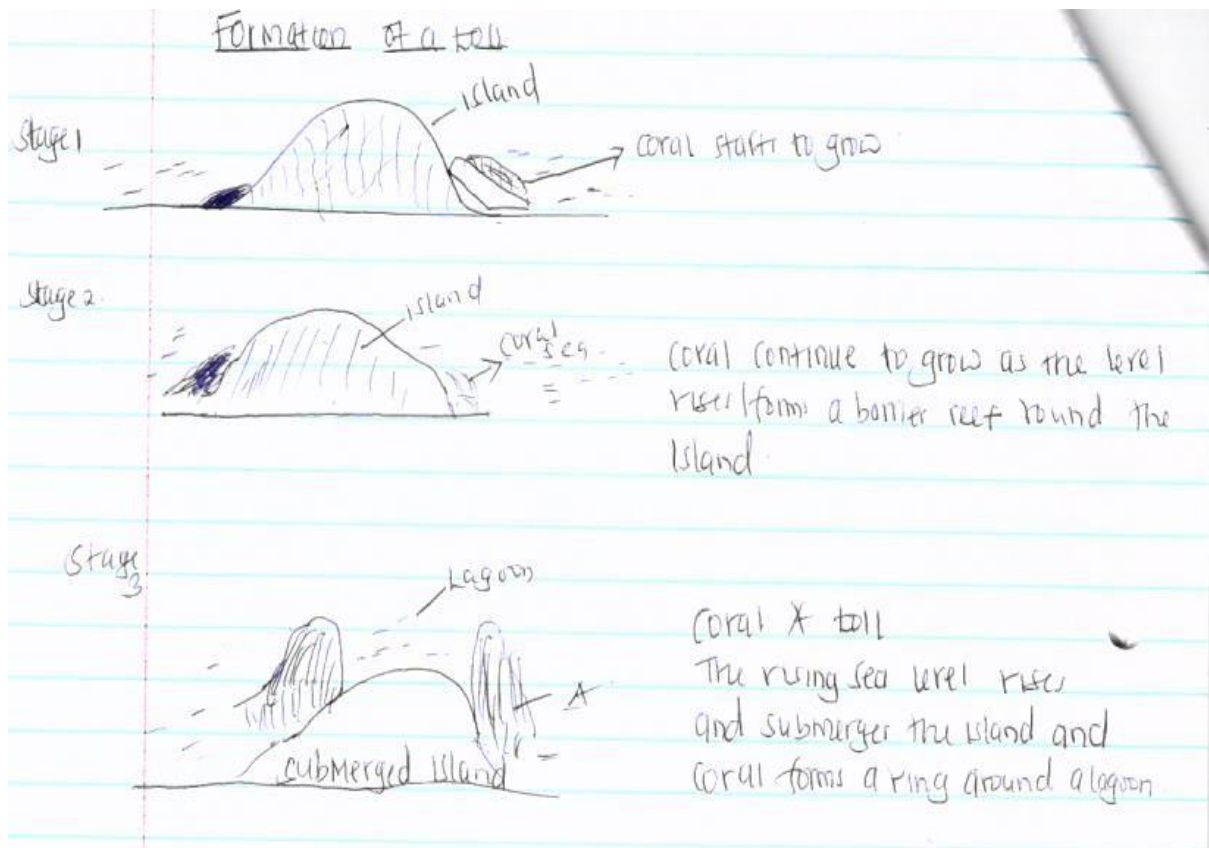 Formation of a toll
Stage 1
island
coral starts to grow
Stage 2.
island
coral
sea
coral continue to grow as the level
rises/forms a barrier reef round the
Island.
Stage
3
Lagoon
A
submerged island
Coral A toll
The rising sea level rises
and submerges the island and
coral forms a ring around a lagoon